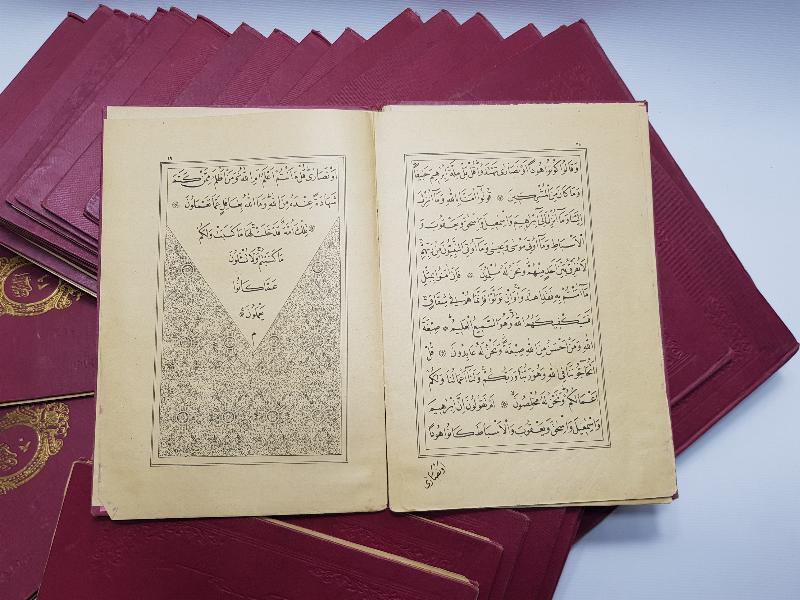 وَقَالُوا كُونُوا هُودًا اَوْ نَصَارٰى تَهْتَدُوا قُلْ بَلْ مِلَّةَ اِبْرٰهِيمَ حَنِيفًا
وَمَا كَانَ مِنَ الْمُشْرِكِينَ ۞ قُولُوا اٰمَنَّا بِاللّٰهِ وَمَا اُنْزِلَ
اِلَيْنَا وَمَا اُنْزِلَ اِلٰى اِبْرٰهِيمَ وَاِسْمٰعِيلَ وَاِسْحٰقَ وَيَعْقُوبَ وَ
الْاَسْبَاطِ وَمَا اُوتِيَ مُوسٰى وَعِيسٰى وَمَا اُوتِيَ النَّبِيُّونَ مِنْ رَبِّهِمْ
لَا نُفَرِّقُ بَيْنَ اَحَدٍ مِنْهُمْ وَنَحْنُ لَهُ مُسْلِمُونَ ۞ فَاِنْ اٰمَنُوا بِمِثْلِ
مَا اٰمَنْتُمْ بِهِ فَقَدِ اهْتَدَوْا وَاِنْ تَوَلَّوْا فَاِنَّمَا هُمْ فِي شِقَاقٍ
فَسَيَكْفِيكَهُمُ اللّٰهُ وَهُوَ السَّمِيعُ الْعَلِيمُ ۞ صِبْغَةَ
اللّٰهِ وَمَنْ اَحْسَنُ مِنَ اللّٰهِ صِبْغَةً وَنَحْنُ لَهُ عَابِدُونَ ۞ قُلْ
اَتُحَاجُّونَنَا فِي اللّٰهِ وَهُوَ رَبُّنَا وَرَبُّكُمْ وَلَنَا اَعْمَالُنَا وَلَكُمْ
اَعْمَالُكُمْ وَنَحْنُ لَهُ مُخْلِصُونَ ۞ اَمْ تَقُولُونَ اِنَّ اِبْرٰهِيمَ
وَاِسْمٰعِيلَ وَاِسْحٰقَ وَيَعْقُوبَ وَالْاَسْبَاطَ كَانُوا هُودًا
اَوْ نَصَارٰى
١٩
اَوْ نَصَارٰى قُلْ ءَاَنْتُمْ اَعْلَمُ اَمِ اللّٰهُ وَمَنْ اَظْلَمُ مِمَّنْ كَتَمَ
شَهَادَةً عِنْدَهُ مِنَ اللّٰهِ وَمَا اللّٰهُ بِغَافِلٍ عَمَّا تَعْمَلُونَ ۞
تِلْكَ اُمَّةٌ قَدْ خَلَتْ لَهَا مَا كَسَبَتْ وَلَكُمْ
مَا كَسَبْتُمْ وَلَا تُسْـَٔلُونَ
عَمَّا كَانُوا
يَعْمَلُونَ ۞
م